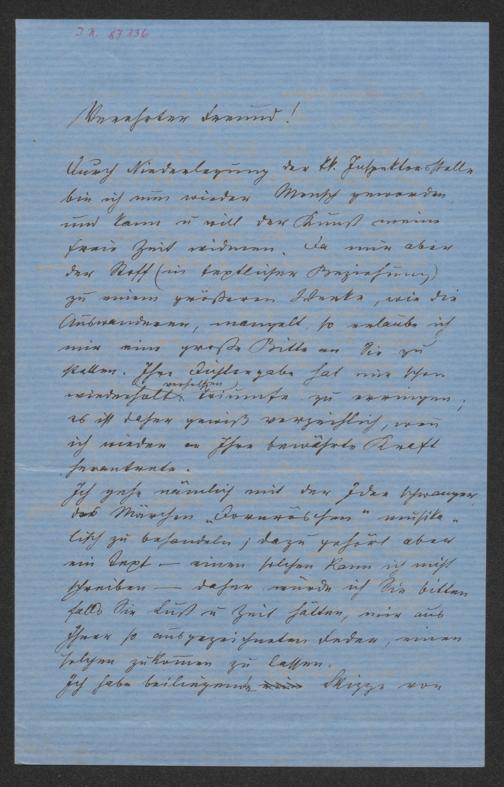 I.N. 87.136
Verehrter Freund!
Durch Niederlegung der kk. Inspektorstelle
bin ich nun wieder Mensch geworden
und kann u will der Kunst meine
freie Zeit widmen. Da mir aber
der Stoff (in textlicher Beziehung)
zu einem größeren Werke, wie die
Auswanderer, mangelt, so erlaube ich
mir eine große Bitte an Sie zu
stellen. Ihre Dichtergabe hat mir schon
wiederholt verholfen Triumfe zu erringen;
es ist daher gewiß verzeihlich, wenn
ich wieder an Ihre bewährte Kraft
herantrete.
Ich gehe nämlich mit der Idee schwanger
das Märchen „Dornröschen" musika-
lisch zu behandeln; dazu gehört aber
ein Text — einen solchen kann ich nicht
schreiben — daher würde ich Sie bitten
falls Sie Lust u Zeit hätten, mir aus
Ihrer so ausgezeichneten Feder, einen
solchen zukommen zu lassen.
Ich habe beiliegende Skizze von